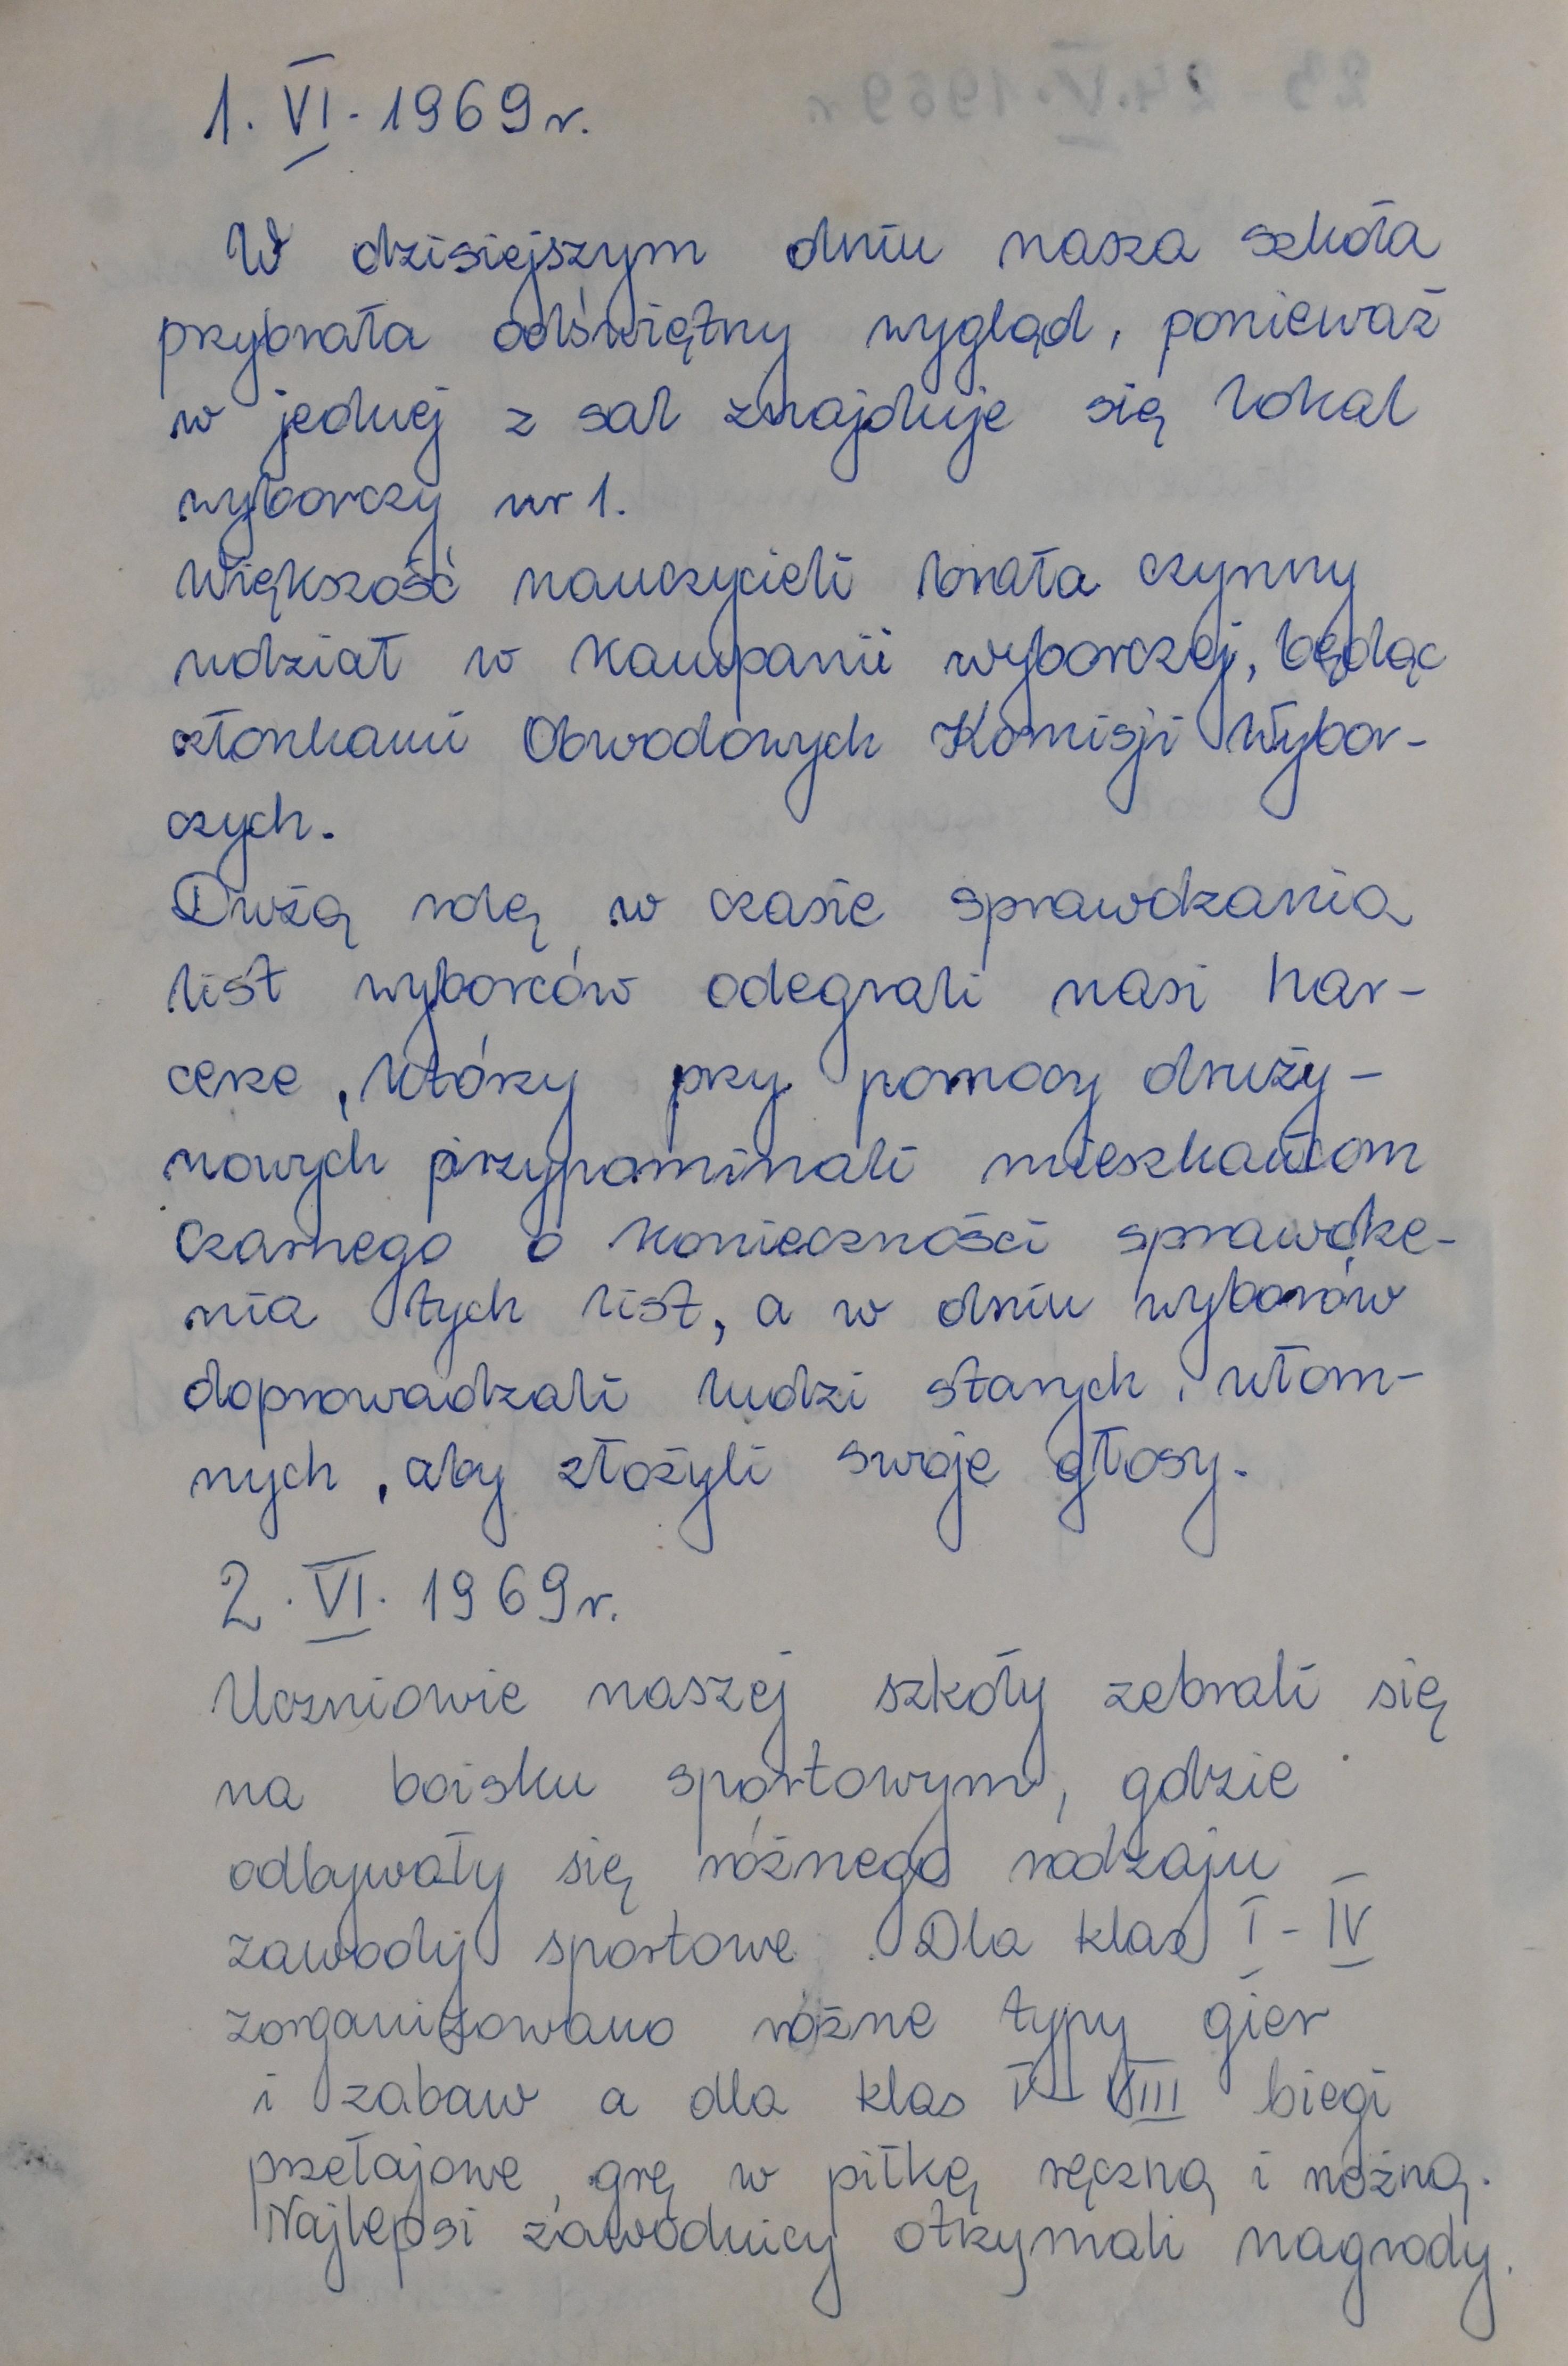 1. VI. 1969 r.
W dzisiejszym dniu nasza szkoła
przybrała odświętny wygląd, ponieważ
w jednej z sal znajduje się lokal
wyborczy nr 1.
Większość nauczycieli brała czynny
udział w kampanii wyborczej, będąc
członkami Obwodowych Komisji Wybor-
czych.
Dużą rolę w czasie sprawdzania
list wyborców odegrali nasi har-
cerze, którzy przy pomocy druży-
nowych przypominali mieszkańcom
Czarnego o konieczności sprawdze-
nia tych list, a w dniu wyborów
doprowadzali ludzi starych, ułom-
nych, aby złożyli swoje głosy.
2. VI. 1969 r.
Uczniowie naszej szkoły zebrali się
na boisku sportowym, gdzie
odbywały się różnego rodzaju
zawody sportowe. Dla klas I - IV
zorganizowano różne typy gier
i zabaw a dla klas V - VIII biegi
przełajowe, grę w piłkę ręczną i nożną.
Najlepsi zawodnicy otrzymali nagrody.